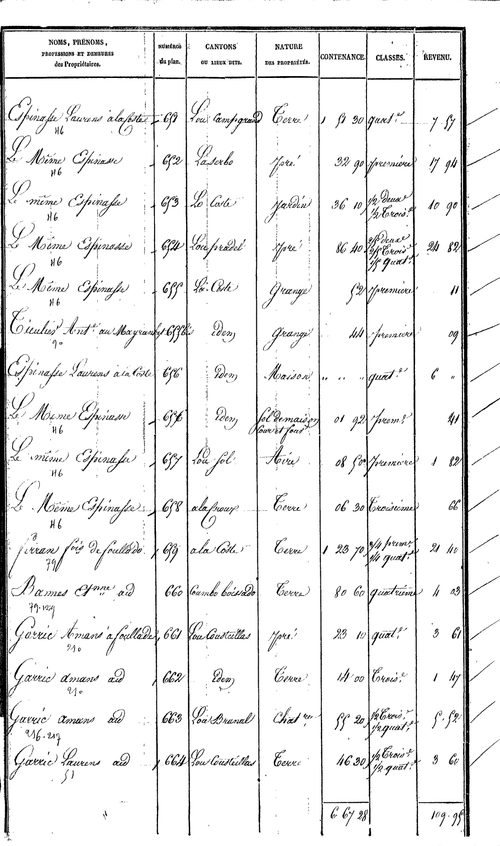 NOMS, PRÉNOMS, PROFESSIONS ET DEMEURES des Propriétaires. NUMÉROS du plan. CANTONS OU LIEUX DITS. NATURE DES PROPRIÉTÉS. CONTENANCE. CLASSES. REVENU.
Espinasse Laurens à la Coste 651 Lou camp grand Terre 1 51 30 quat.e 7 57
H6
Le Même Espinasse 652 Laserbo Pré 32 90 première 17 94
H6
Le même Espinasse 653 La Coste Jardin 36 10 1/2 deux 1/2 Trois.e 10 90
H6
Le Même Espinasse 654 Lou pradel Pré 86 40 deux Trois quat.e 24 82
H6
Le Même Espinasse 655 La Coste Grange 52 première 11
H6
Ant.e au 655 bis idem Grange 44 première 09
90
Espinasse Laurens à la Coste 656 idem Maison " " " quat.e 6 "
Le Même Espinasse 656 idem Sol de maison Cour et four 01 92 prem.e 41
H6
Le même Espinasse 657 Lou sol Aire 08 50 première 1 82
H6
Le Même Espinasse 658 a la Croux Terre 06 30 Troisième 66
H6
ferran fois de foullade 659 a la Coste Terre 1 23 70 3/4 prem.e 1/4 quat.e 21 40
79
Bannes Etnne aid 660 Coumbo boissado Terre 80 60 quatrième 4 03
79-129
Garric Amans a foullade 661 Lou Coustillas Pré 23 10 quat.e 3 61
210
Garric amans aid 662 idem Terre 14 00 Trois.e 1 47
210
Garric amans aid 663 Lou Branal Chat.re 55 20 1/2 Trois.e 1/2 quat.e 5 52
216-217
Garric Laurens aid 664 Lou Coustillas Terre 46 30 1/2 Trois.e 1/2 quat.e 3 60
51
6 67 28 109 95